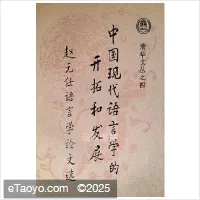 清华文丛之四
中国现代语言学的
开拓和发展
赵元任语言学论文选
eTaoyo.com ©2025